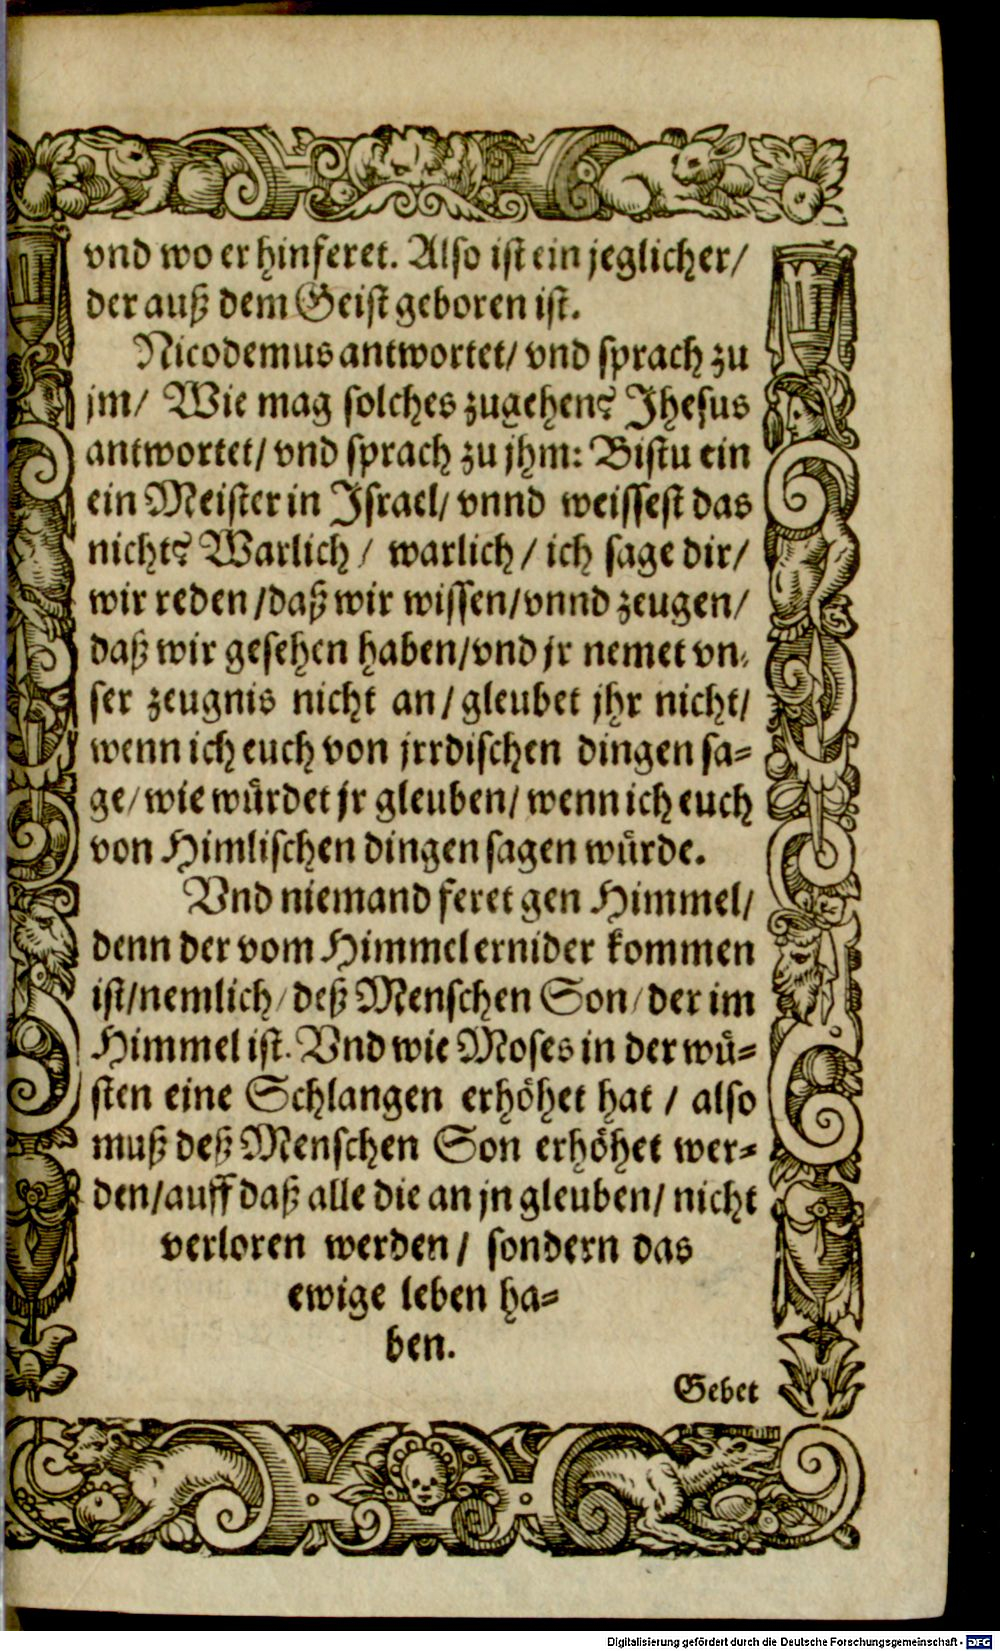 vnd wo er hinferet. Also ist ein jeglicher/
der auß dem Geist geboren ist.
Nicodemus antwortet/ vnd sprach zu
jm/ Wie mag solches zugehen? Jhesus
antwortet/ vnd sprach zu jhm: Bistu ein
ein Meister in Israel/ vnnd weissest das
nicht? Warlich/ warlich/ ich sage dir/
wir reden/ daß wir wissen/ vnnd zeugen/
daß wir gesehen haben/ vnd jr nemet vn-
ser zeugnis nicht an/ gleubet jhr nicht/
wenn ich euch von jrrdischen dingen sa-
ge/ wie würdet jr gleuben/ wenn ich euch
von Himlischen dingen sagen würde.
Vnd niemand feret gen Himmel/
denn der vom Himmel ernider kommen
ist/ nemlich/ deß Menschen Son/ der im
Himmel ist. Vnd wie Moses in der wü-
sten eine Schlangen erhöhet hat/ also
muß deß Menschen Son erhöhet wer-
den/ auff daß alle die an jn gleuben/ nicht
verloren werden/ sondern das
ewige leben ha-
ben.
Gebet
Digitalisierung gefördert durch die Deutsche Forschungsgemeinschaft - DFG